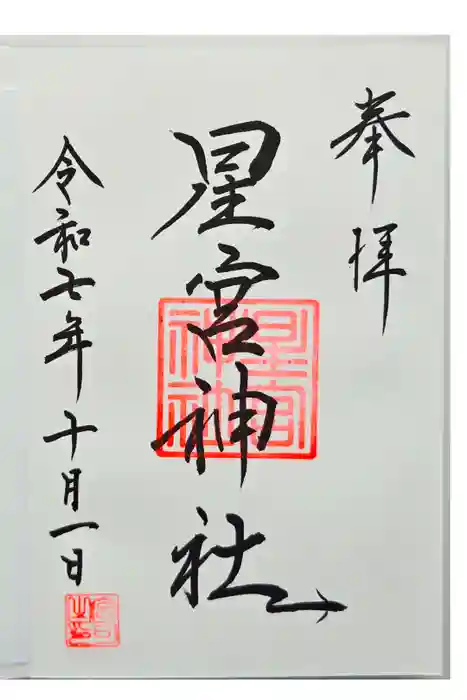 奉拝
星宮神社
星宮神社
令和七年十月一日